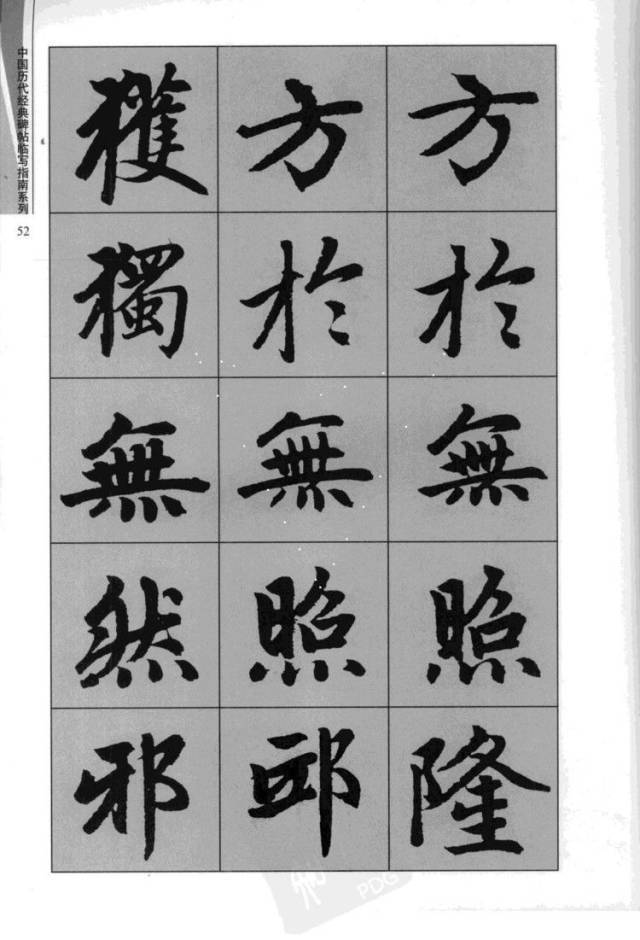 中国历代经典碑帖临写指南系列
52
方 方 獲
於 於 獨
無 無 無
照 照 然
隆 邱 邪
PDG